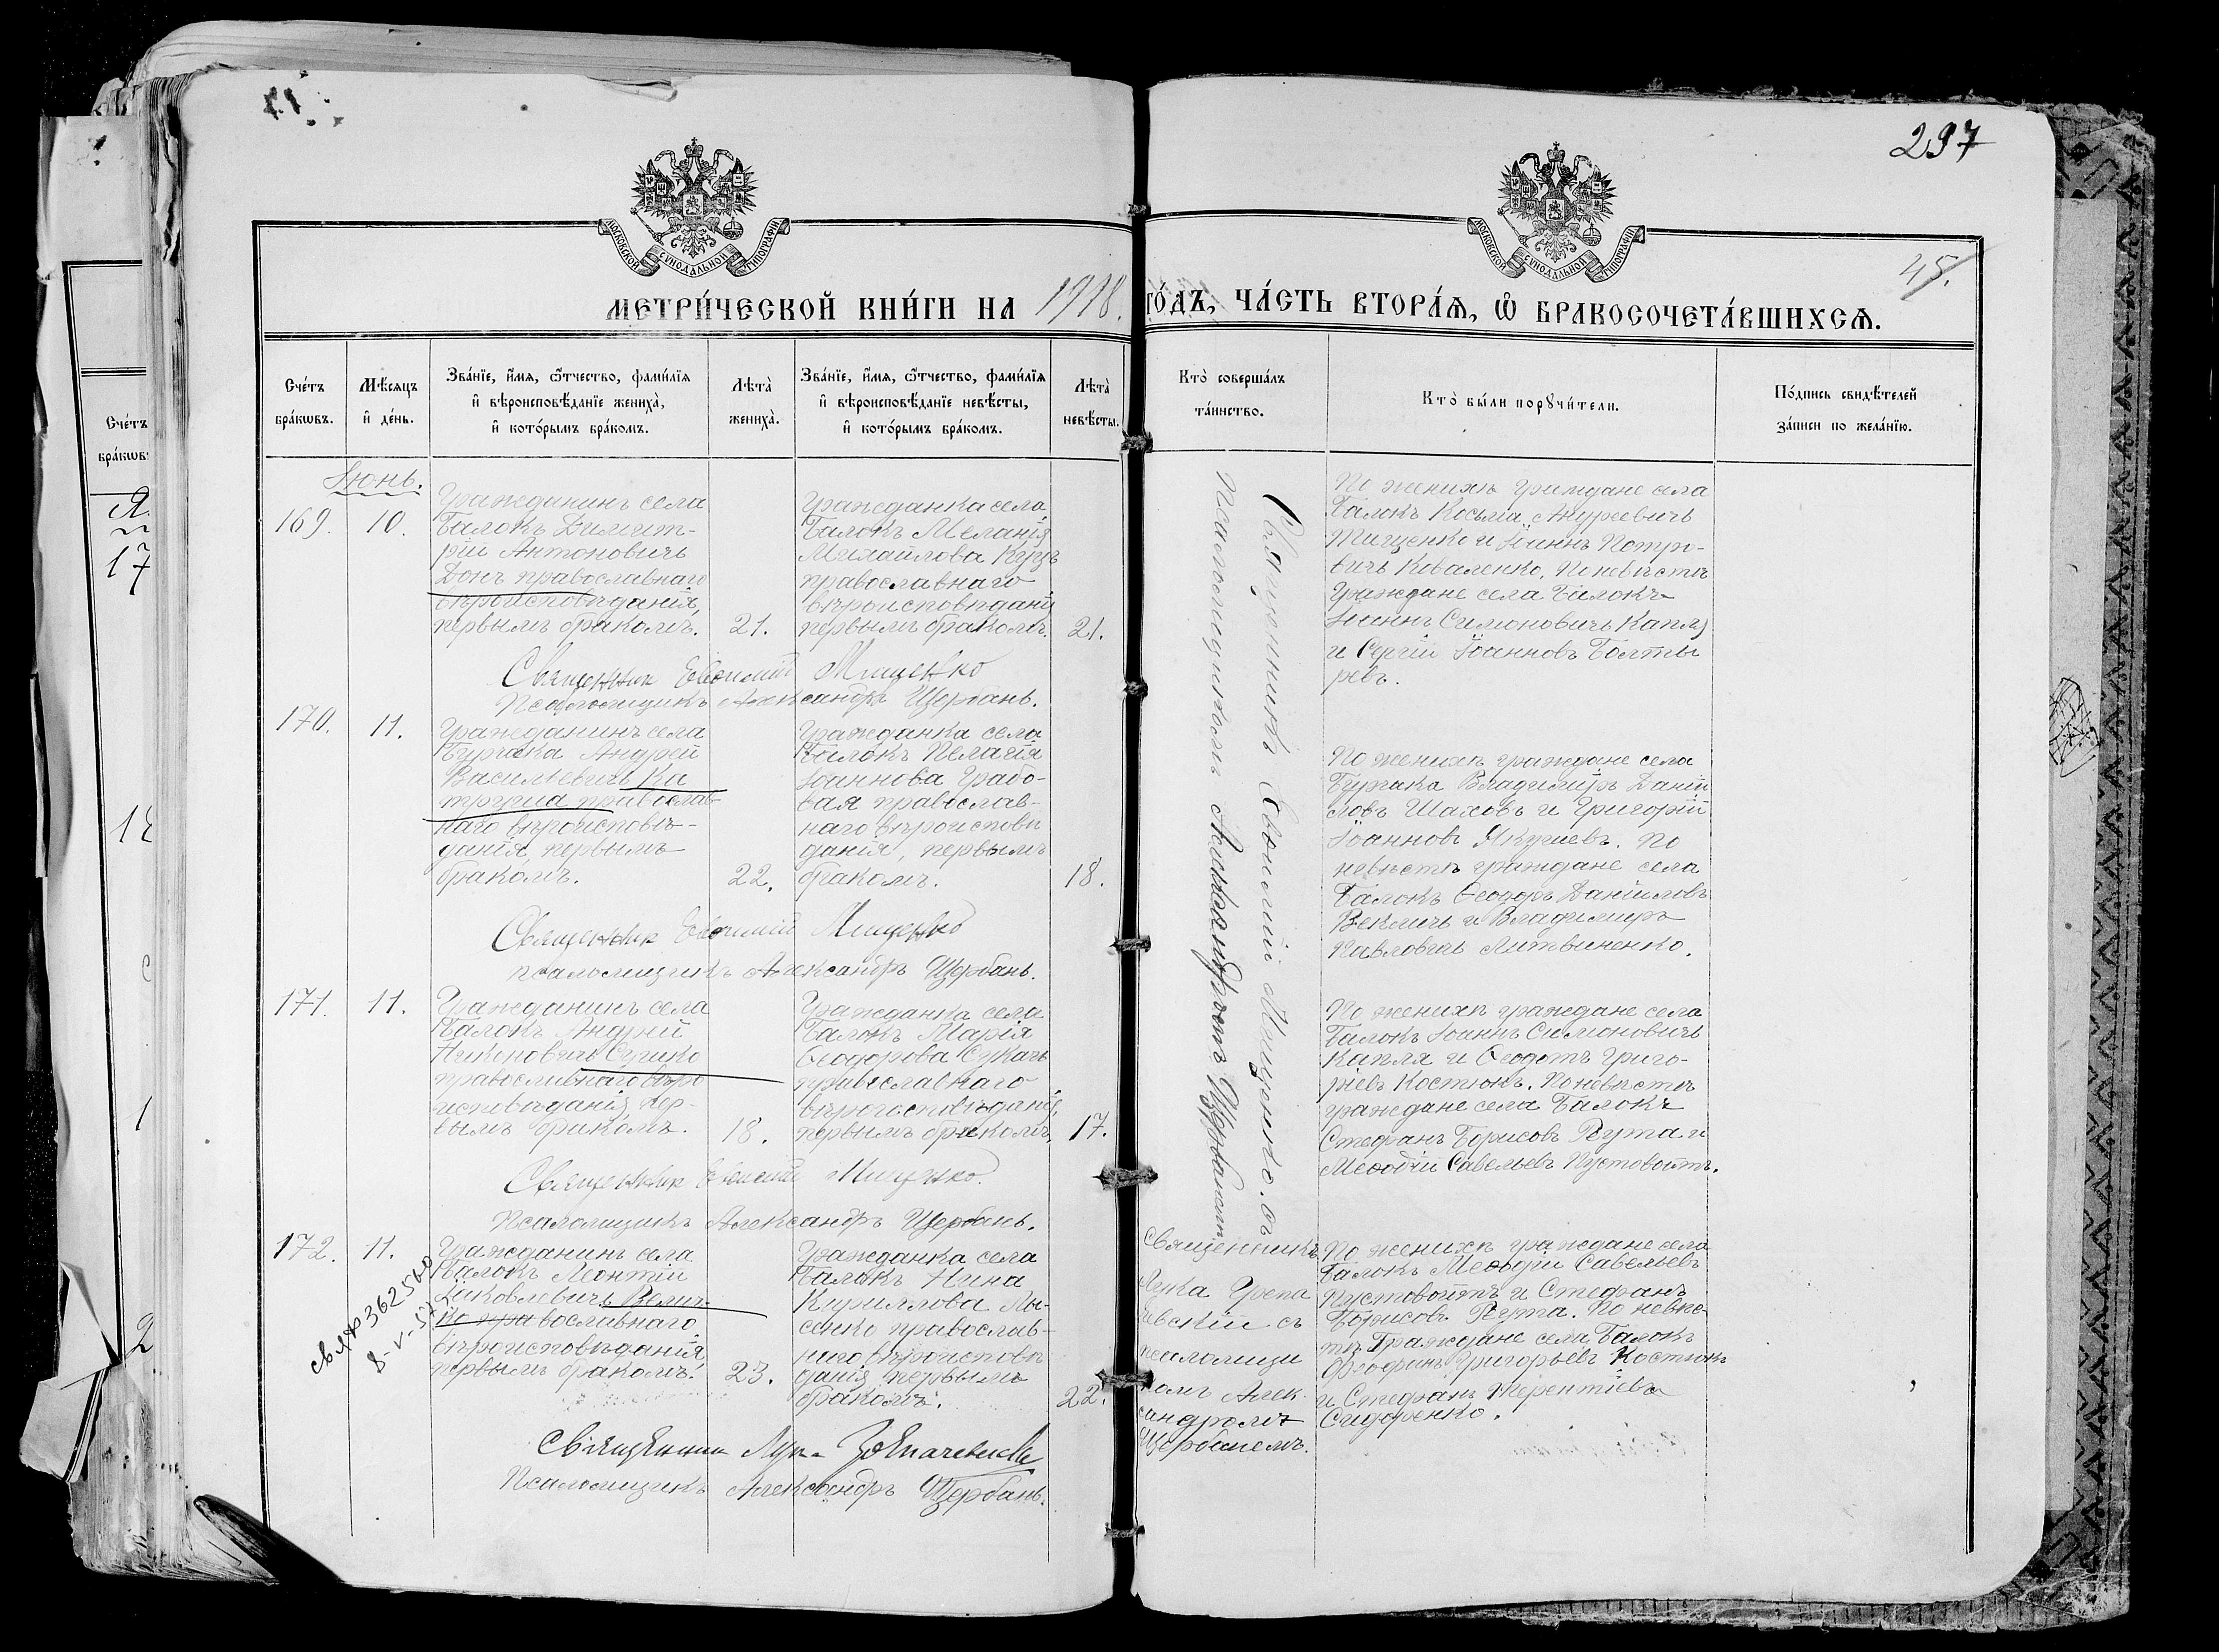 297
45.
МОСКОВСКОЙ СѴНОДАЛЬНОЙ ТИПОГРАФІИ
МОСКОВСКОЙ СѴНОДАЛЬНОЙ ТИПОГРАФІИ
МЕТРИ́ЧЕСКОЙ КНИ́ГИ НА 1918. ГО́ДЪ, ЧА́СТЬ ВТОРА́Ѧ, Ѽ БРАКОСОЧЕТА́ВШИХСѦ.
Счетъ бракѡвъ.
Мѣсяцъ и день.
Званіе, имя, ѿчество, фамилія
и вѣроисповѣданіе жениха,
и которымъ бракомъ.
Лѣта жениха.
Званіе, имя, ѿчество, фамилія
и вѣроисповѣданіе невѣсты,
и которымъ бракомъ.
Лѣта невѣсты.
Кто совершалъ
таинство.
Кто были порꙋчители.
Подпись свидѣтелей
записи по желанію.
Іюнь.
169. 10.
Гражданинъ села
Балокъ Димит-
рій Антоновичъ
Донъ православнаго
вѣроисповѣданія,
первымъ бракомъ. 21.
Гражданка села
Балокъ Меланія
Михайлова Куцъ
православнаго
вѣроисповѣданія
первымъ бракомъ. 21.
По женихѣ граждане села
Балокъ Косьма Андреевичъ
Тищенко и Іоаннъ Петро-
вичъ Коваленко. По невѣстѣ
Граждане села Балокъ
Іоаннъ Симоновичъ Капля
и Сергій Іоанновъ Болты
ревъ.
Священникъ Евѳимій Мищенко
Псаломщикъ Александръ Щербань.
170. 11.
Гражданинъ села
Бурчака Андрей
Васильевичъ Ка
труша православ-
наго вѣроисповѣ-
данія, первымъ
бракомъ. 22.
Гражданка села
Балокъ Пелагія
Іоаннова Грабо-
вая православ-
наго вѣроисповѣ
данія, первымъ
бракомъ. 18.
По женихѣ граждане села
Бурчака Владиміръ Даніи
ловъ Шаховъ и Григорій
Іоанновъ Якушевъ. По
невѣстѣ граждане села
Балокъ Ѳеодоръ Даніиловъ
Векличъ и Владимиръ
Павловичъ Литвиненко.
Священникъ Евѳимій Мищенко
псаломщикъ Александръ Щербань.
171. 11.
Гражданинъ села
Балокъ Андрей
Никоновичъ Сушко
православнаго вѣро
исповѣданія, пер-
вымъ бракомъ. 18.
Гражданка села
Балокъ Марія
Ѳеодорова Сукачъ
православнаго
вѣроисповѣданія,
первымъ бракомъ, 17.
По женихѣ граждане села
Балокъ Іоаннъ Симоновичъ
Капля и Ѳеодотъ Григо-
ріевъ Костюкъ. По невѣстѣ
граждане села Балокъ
Стефанъ Борисовъ Реута и
Меѳодій Савельевъ Пустовойтъ.
Священникъ Евѳимій Мищенко.
Псаломщикъ Александръ Щербань.
Священникъ Евѳимій Мищенко. съ
псаломщикомъ Александромъ Щербанемъ
172. 11.
Гражданинъ села
Балокъ Леонтій
Іаковлевичъ Велич-
ко православнаго
вѣроисповѣданія
первымъ бракомъ. 23.
Гражданка села
Балокъ Нина
Кириллова Лы-
сенко православ-
наго вѣроисповѣ
данія первымъ
бракомъ. 22.
Священникъ
Лука
съ
псаломщи
комъ Алек-
сандромъ
Щербанемъ.
По женихѣ граждане села
Балокъ Меѳодій Савельевъ
Пустовойтъ и Стефанъ
Борисовъ Реута. По невѣс-
тѣ Граждане села Балокъ
Григорьевъ Костюкъ
и Стефанъ Терентіевъ
Сидоренко.
8-V-57
Священникъ Лука
Псаломщикъ Александръ Щербань.